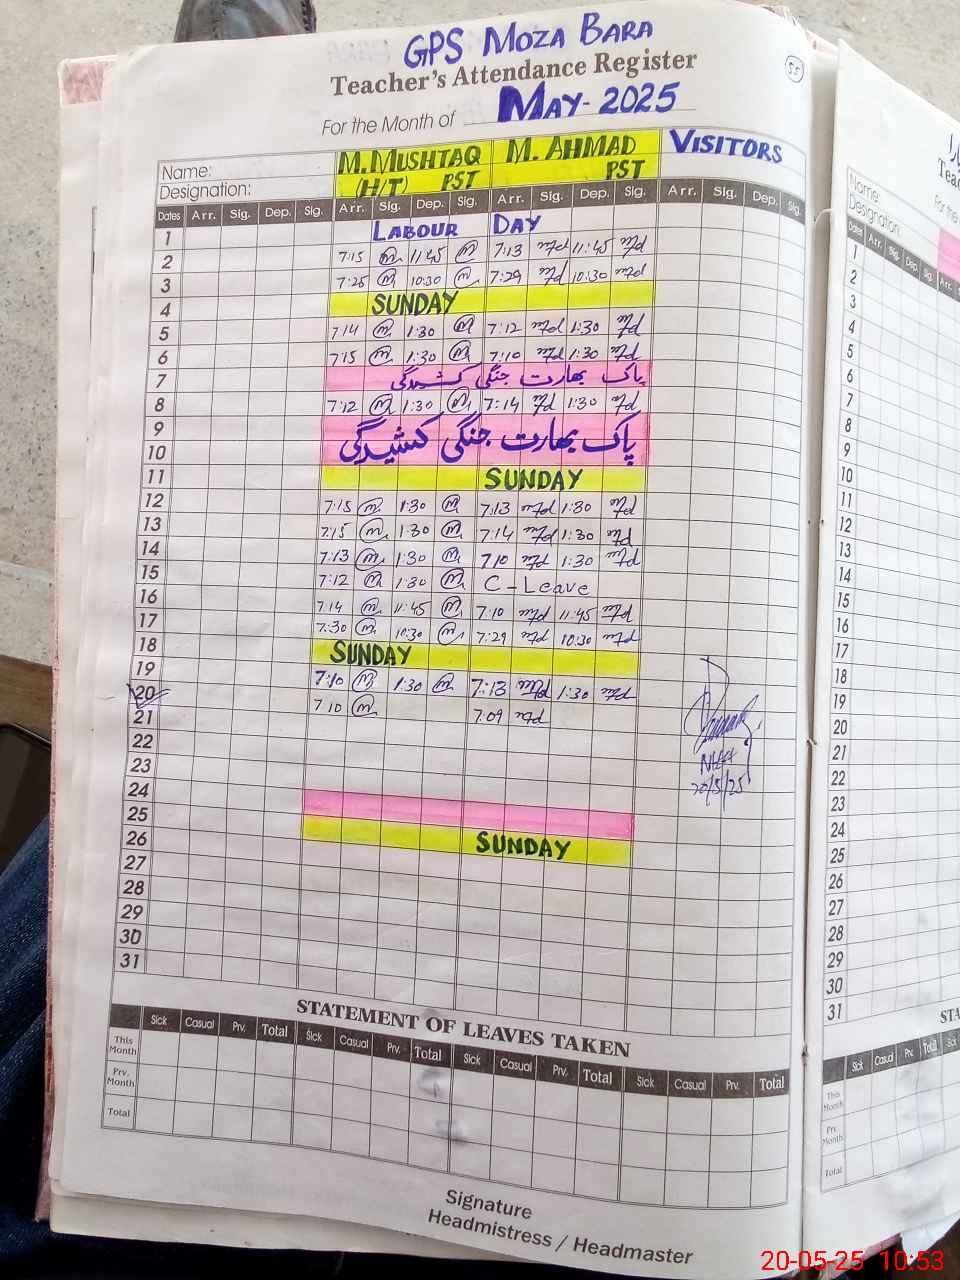 GPS MOZA BARA
55
Teacher's Attendance Register
For the Month of MAY-2025
Name: M. MUSHTAQ M. AHMAD VISITORS
Designation: (H/T) PST PST
Dates Arr. Sig. Dep. Sig. Arr. Sig. Dep. Sig. Arr. Sig. Dep. Sig. Arr. Sig. Dep. Sig.
1 LABOUR DAY
2 7:15 11:45 7:13 11:45
3 7:25 10:30 7:29 10:30
4 SUNDAY
5 7:14 1:30 7:12 1:30
6 7:15 1:30 7:10 1:30
7 پاک بھارت جنگی کشیدگی
8 7:12 1:30 7:14 1:30
9
پاک بھارت جنگی کشیدگی
10
11 SUNDAY
12 7:15 1:30 7:13 1:30
13 7:15 1:30 7:14 1:30
14 7:13 1:30 7:10 1:30
15 7:12 1:30 C-Leave
16 7:14 11:45 7:10 11:45
17 7:30 10:30 7:29 10:30
18 SUNDAY
19 7:10 1:30 7:13 1:30
20 7:10 7:09
21
22
23
24
25 SUNDAY
26
27
28
29
30
31
20/5/25
STATEMENT OF LEAVES TAKEN
Sick Casual Prv. Total Sick Casual Prv. Total Sick Casual Prv. Total Sick Casual Prv. Total
This Month
Prv. Month
Total
Signature
Headmistress / Headmaster
Name:
Designation:
For the
Dates Arr. Sig. Dep. Sig. Arr.
1
2
3
4
5
6
7
8
9
10
11
12
13
14
15
16
17
18
19
20
21
22
23
24
25
26
27
28
29
30
31
STA
Sick Casual Prv. Total Sick
This Month
Prv. Month
Total
20-05-25 10:53